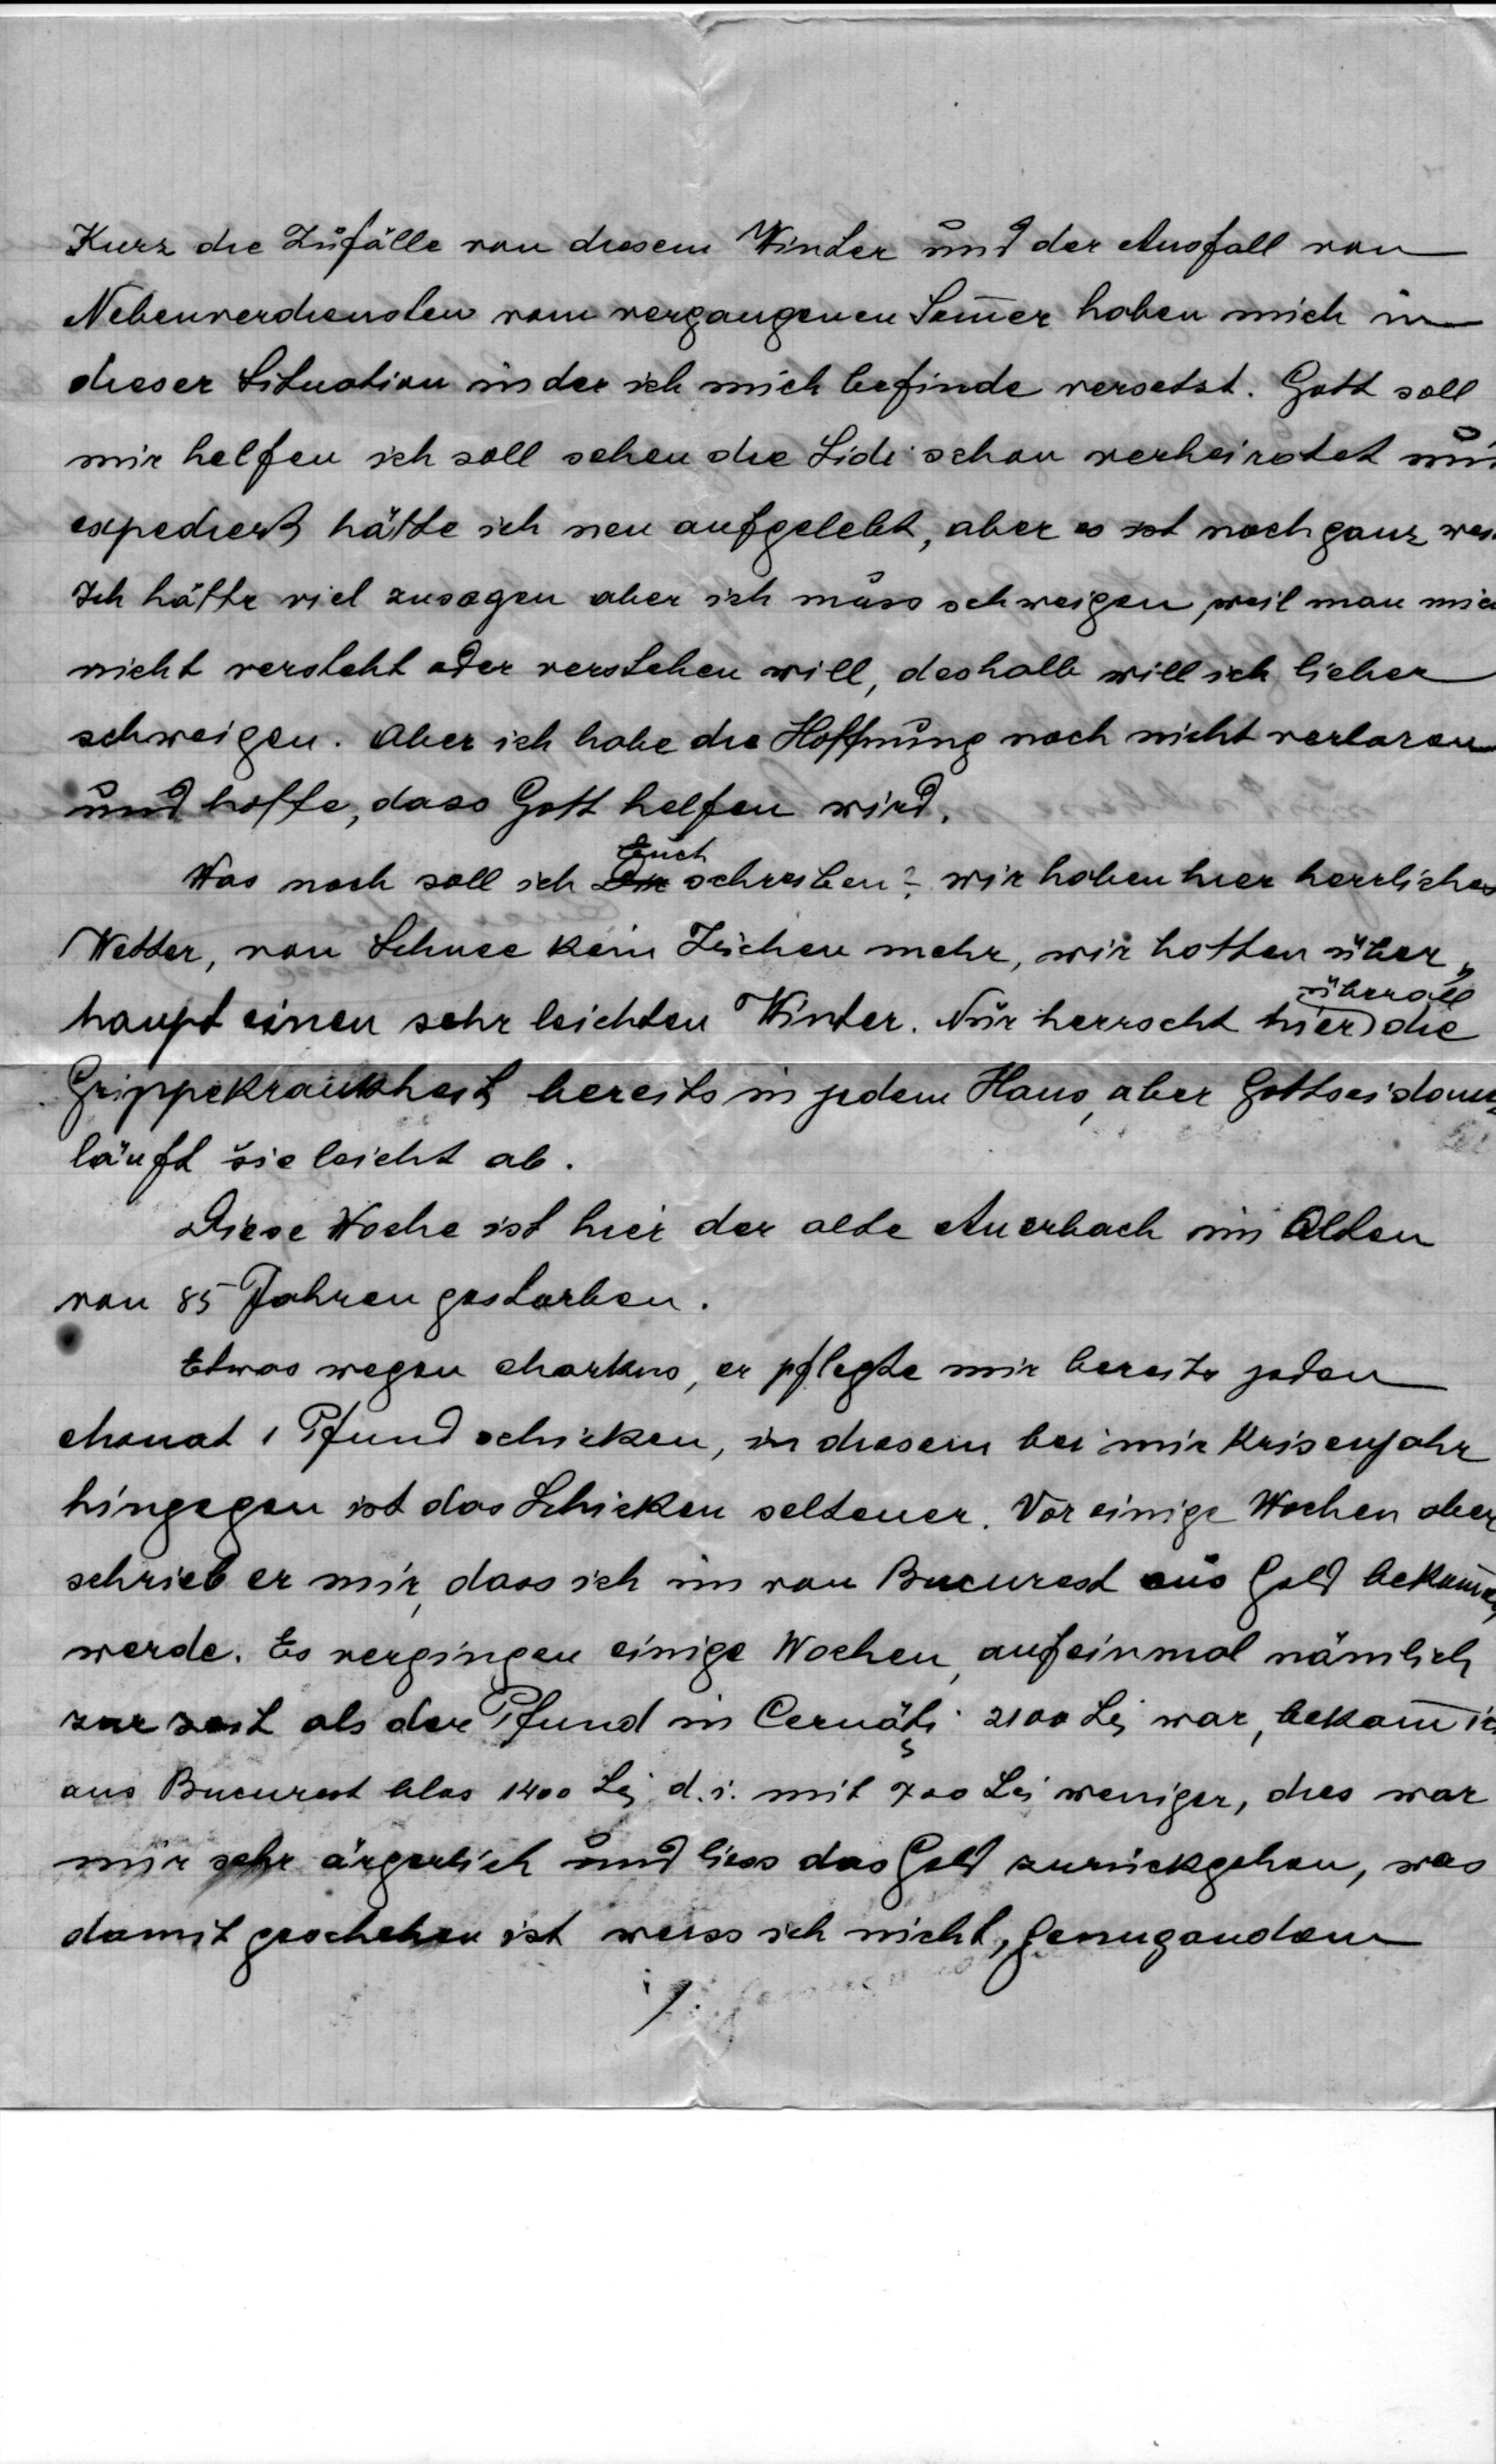 Kurz die Zufälle von diesem Winter und der Ausfall von
Nebenverdiensten vom vergangenen Som̅er haben mich in
dieser Situation in der ich mich befinde versetzt. Gott soll
mir helfen ich soll sehen die Lidi schon verheiratet und
expediert hätte ich neu aufgelebt, aber es ist noch ganz
Ich hätte viel zusagen aber ich muss schweigen, weil man mich
nicht versteht oder verstehen will, deshalb will ich lieber
schweigen. Aber ich habe die Hoffnung noch nicht verloren
und hoffe, dass Gott helfen wird.
Was noch soll ich Euch schreiben? wir haben hier herrliches
Wetter, von Schnee kein Zeichen mehr, wir hatten über„
haupt einen sehr leichten Winter. Nur herrscht hier überall die
Grippekrankheit bereits in jedem Haus, aber Gottseidank
läuft sie leicht ab.
Diese Woche ist hier der alte Auerbach im Alten
von 85 Jahren gestorben.
Etwas wegen Markus, er pflegte mir bereits jeden
Monat 1 Pfund schicken, in diesem bei mir Krisenjahr
hingegen ist das Schicken seltener. Vor einige Wochen aber
schrieb er mir, dass ich im von Bucurest aus Geld bekom̅en
werde. Es vergingen einige Wochen, aufeinmal nämlich
zur zeit als der Pfund in Cernăţi 2100 Lei war, bekam̅ ich
aus Bucurest blos 1400 Lei d.i. mit 700 Lei weniger, dies war
mir sehr ärgerlich und liess das Geld zurückgehen, was
damit geschehen ist weiss ich nicht, genugandem
./.